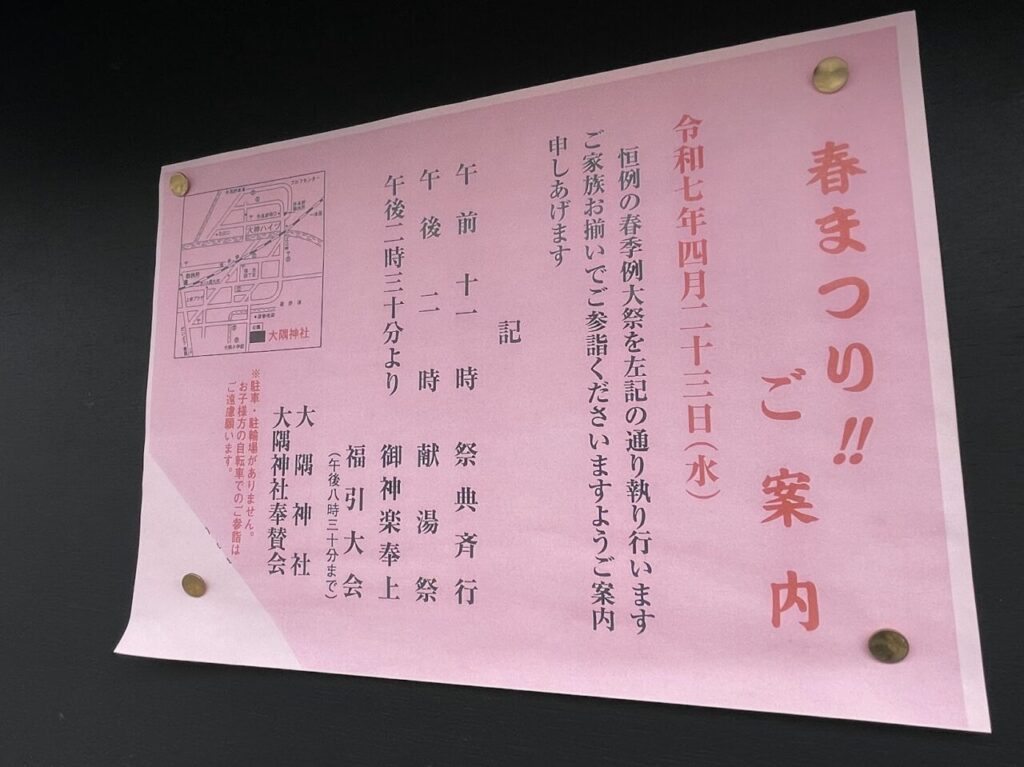 春まつり!!
ご案内
令和七年四月二十三日(水)
恒例の春季例大祭を左記の通り執り行います
ご家族お揃いでご参詣くださいますようご案内
申しあげます
記
午前十一時 祭典斉行
午後二時 献湯祭
午後二時三十分より 御神楽奉上
福引大会
(午後八時三十分まで)
大隅神社
大隅神社奉賛会
※駐車・駐輪場がありません。
お子様方の自転車でのご参詣は
ご遠慮願います。
大隅神社